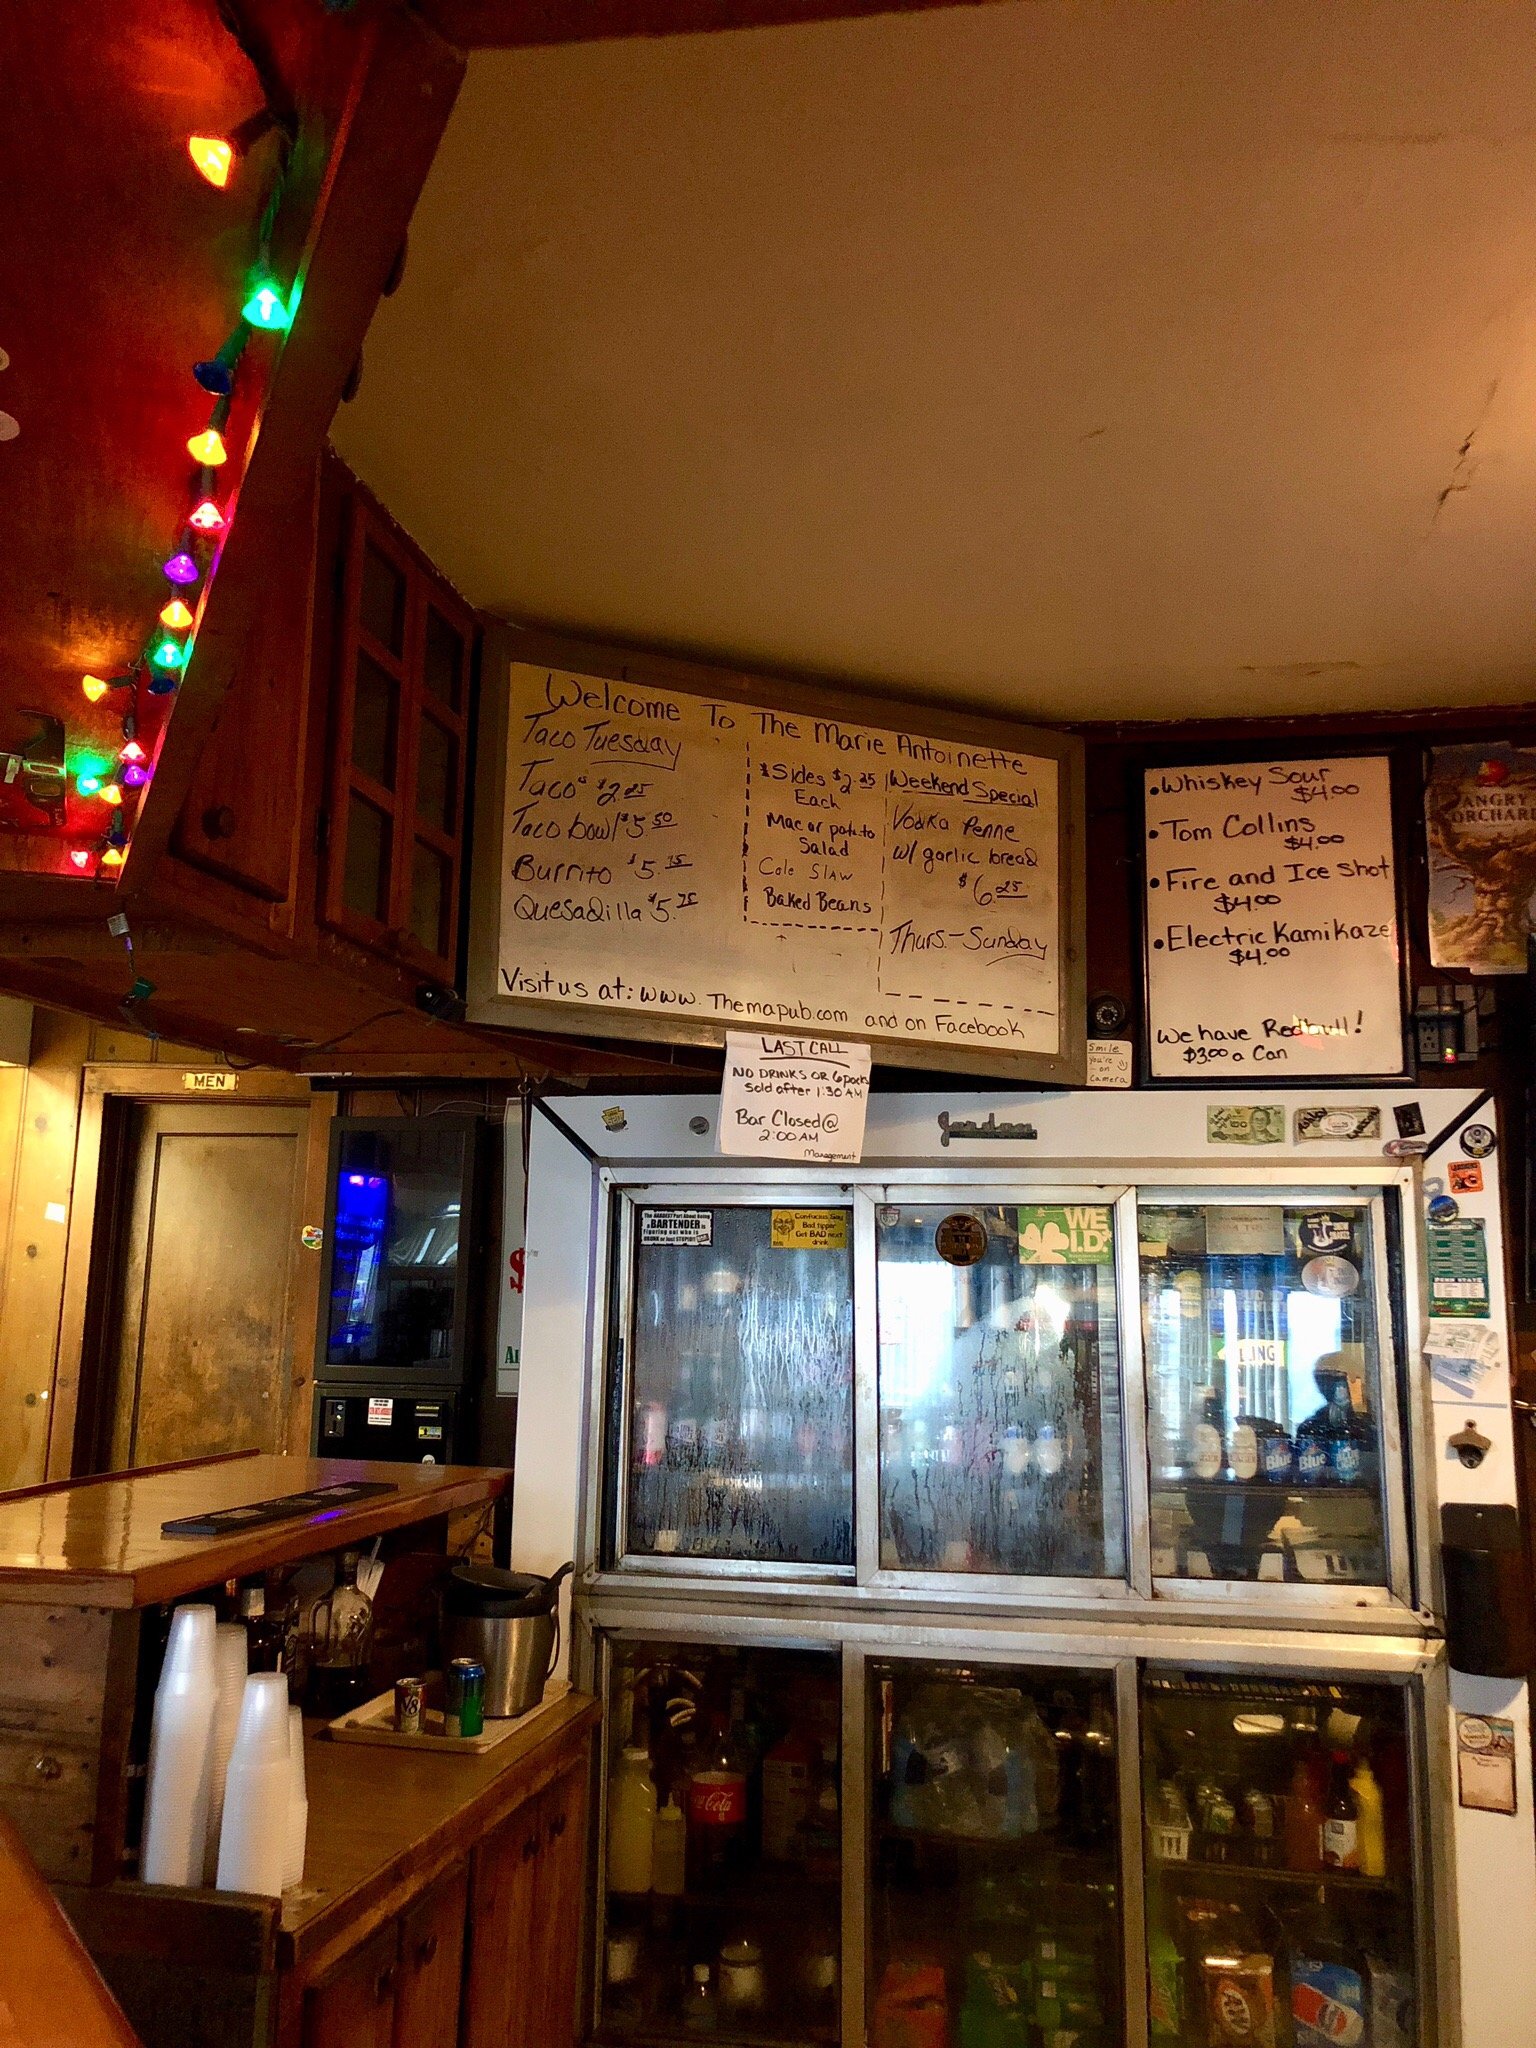 Welcome To The Marie Antoinette
Taco Tuesday
Taco's
Taco bowl $5.50
Burrito
Quesadilla
Sides $2.25
Each
Mac or potato
Salad
Cole Slaw
Baked Beans
Weekend Special
Vodka Penne
w/ garlic bread
$6.25
Thurs.-Sunday
Visit us at: www.Themapub.com and on Facebook
• Whiskey Sour
$4.00
• Tom Collins
$4.00
• Fire and Ice Shot
$4.00
• Electric Kamikaze
$4.00
We have Redbull!
$3.00 a Can
ANGRY
ORCHARD
Smile
You're
on
Camera
LAST CALL
NO DRINKS OR 6packs
Sold after 1:30 AM
Bar Closed @
2:00 AM
Management
MEN
Jordan
The HARDEST Part About Being
a BARTENDER is
figuring out who is
DRUNK or Just STUPID!!
Confucius Say
Bad tipper
Get BAD next
drink
WE
I.D.
LING
PENN STATE
Blue
Blue
V8
Coca-Cola